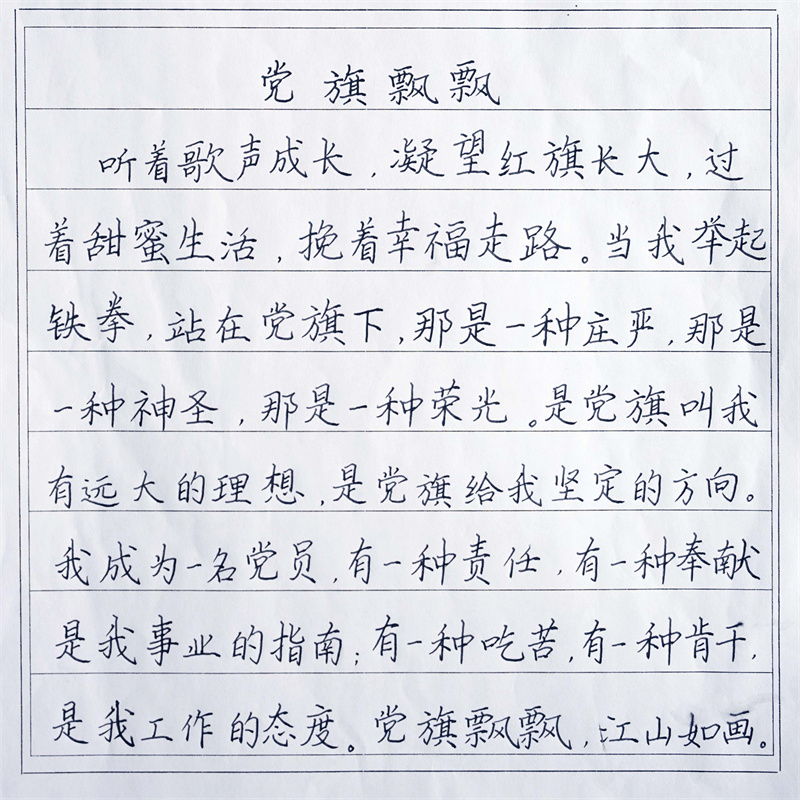 党旗飘飘
听着歌声成长，凝望红旗长大，过
着甜蜜生活，挽着幸福走路。当我举起
铁拳，站在党旗下，那是一种庄严，那是
一种神圣，那是一种荣光。是党旗叫我
有远大的理想，是党旗给我坚定的方向。
我成为一名党员，有一种责任，有一种奉献
是我事业的指南；有一种吃苦，有一种肯干，
是我工作的态度。党旗飘飘，江山如画。